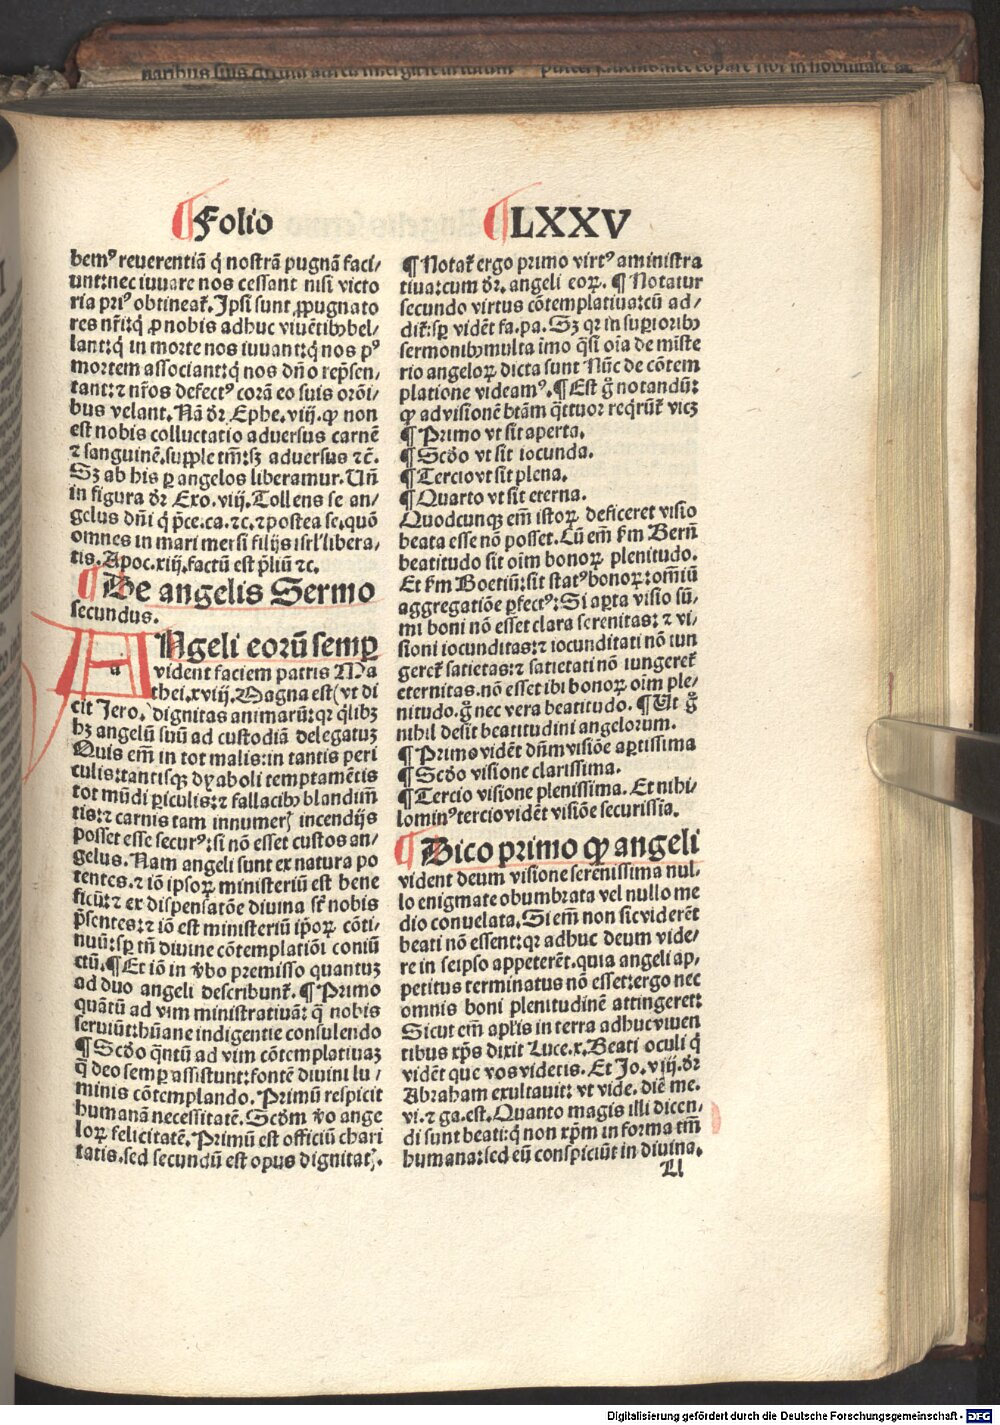 ¶ Folio ¶ LXXV
bemꝰ reuerentiã q̃ nostrã pugnã faci⸗
unt:nec iuuare nos cessant nisi victo
ria priꝰ obtineat᷑. Ipsi sunt ꝓpugnato
res nr̃i:q̃ ꝓ nobis adhuc viuẽtibꝫ bel⸗
lant:q̃ in morte nos iuuant:q̃ nos pꝰ
mortem associant:q̃ nos dño rep̃sen⸗
tant:⁊ nr̃os defectꝰ corã eo suis orõi⸗
bus velant. Nã dr̃ Ephe. viij. ꝙ non
est nobis colluctatio aduersus carnẽ
⁊ sanguinẽ. supple tm̃:sꝫ aduersus ⁊c̃.
Sꝫ ab his ꝑ angelos liberamur. Uñ
in figura dr̃ Exo. viij. Tollens se an⸗
gelus dñi q̃ p̃ce. ca. ⁊c. ⁊ postea se. quõ
omnes in mari mersi filijs isrl' libera⸗
tis. Apoc. xij. factũ est p̃liũ ⁊c.
¶ De angelis Sermo
secundus.
ANgeli eorũ semꝑ
vident faciem patris Ma
thei. xviij. Magna est (vt di
cit Jero. dignitas animarũ:qꝛ q̃libꝫ
hꝫ angelũ suũ ad custodiã delegatuꝫ
Quis em̃ in tot malis:in tantis peri
culis:tantisqꝫ dyaboli temptamẽtis
tot mũdi ꝑiculis:⁊ fallacibꝫ blandim̃
tis:⁊ carnis tam innumerꝭ incendijs
posset esse securꝰ:si nõ esset custos an⸗
gelus. Nam angeli sunt ex natura po
tentes. ⁊ iõ ipsoꝝ ministeriũ est bene
ficũ:⁊ ex dispensatõe diuina sr̃ nobis
p̃sentes:⁊ iõ est ministeriũ ip̃oꝝ cõti⸗
nuũ:sꝑ tñ diuine cõtemplatiõi coniũ
ctũ. ¶ Et iõ in v̾bo premisso quantuꝫ
ad duo angeli describunt᷑. ¶ Primo
quãtũ ad vim ministratiuã: q̃ nobis
seruiũt:hũane indigentie consulendo
¶ Scd̾o q̃ntũ ad vim cõtemplatiuaꝫ
q̃ deo semꝑ assistunt:fontẽ diuini lu⸗
minis cõtemplando. Primũ respicit
humanã necessitatẽ. Scd̾m v̾o ange
loꝝ felicitatẽ. Primũ est officiũ chari
tatis. sed secundũ est opus dignitatꝭ.
¶ Notat᷑ ergo primo virtꝰ aministra
tiua:cum dr̃. angeli eoꝝ. ¶ Notatur
secundo virtus cõtemplatiua:cũ ad⸗
dit᷑:sꝑ vidẽt fa. pa. Sꝫ qꝛ in suꝑioribꝫ
sermonibꝫ multa imo q̃si oĩa de ministe
rio angeloꝝ dicta sunt Nũc de cõtem
platione videamꝰ. ¶ Est g̃ notandũ:
ꝙ ad visionẽ btãm q̃ttuor req̃rũt᷑ vicꝫ
¶ Primo vt sit aperta.
¶ Scd̾o vt sit iocunda.
¶ Tercio vt sit plena.
¶ Quarto vt sit eterna.
Quodcunqꝫ em̃ istoꝝ deficeret visio
beata esse nõ posset. Cũ em̃ km̃ Bern̄
beatitudo sit oĩm bonoꝝ plenitudo.
Et km̃ Boetiũ:sit statꝰ bonoꝝ:omniũ
aggregatiõe ꝑfectꝰ:Si aꝑta visio sũ⸗
mi boni nõ esset clara serenitas: ⁊ vi⸗
sioni iocunditas:⁊ iocunditati nõ iun
geret᷑ satietas:⁊ satietati nõ iungeret᷑
eternitas. nõ esset ibi bonoꝝ oĩm ple⸗
nitudo. g̃ nec vera beatitudo. ¶ Ut g̃
nihil desit beatitudini angelorum.
¶ Primo vidẽt dñm visiõe aꝑtissima
¶ Scd̾o visione clarissima.
¶ Tercio visione plenissima. Et nihi⸗
lominꝰ tercio vidẽt visiõe securissia.
¶ Dico primo ꝙ angeli
vident deum visione serenissima nul⸗
lo enigmate obumbrata vel nullo me
dio conuelata. Si em̃ non sic viderẽt
beati nõ essent:qꝛ adhuc deum vide⸗
re in seipso appeterẽt. quia angeli ap⸗
petitus terminatus nõ esset:ergo nec
omnis boni plenitudinẽ attingeret:
Sicut em̃ apl'is in terra adhuc viuen
tibus xp̃s dixit Luce. x. Beati oculi q̃
vidẽt que vos videtis. Et Jo. viij. dr̃
Abraham exultauit: vt vide. diẽ me.
vi. ⁊ ga. est. Quanto magis illi dicen⸗
di sunt beati:q̃ non xp̃m in forma tm̃
humana:sed eũ conspiciũt in diuina.
U
Digitalisierung gefördert durch die Deutsche Forschungsgemeinschaft - DFG